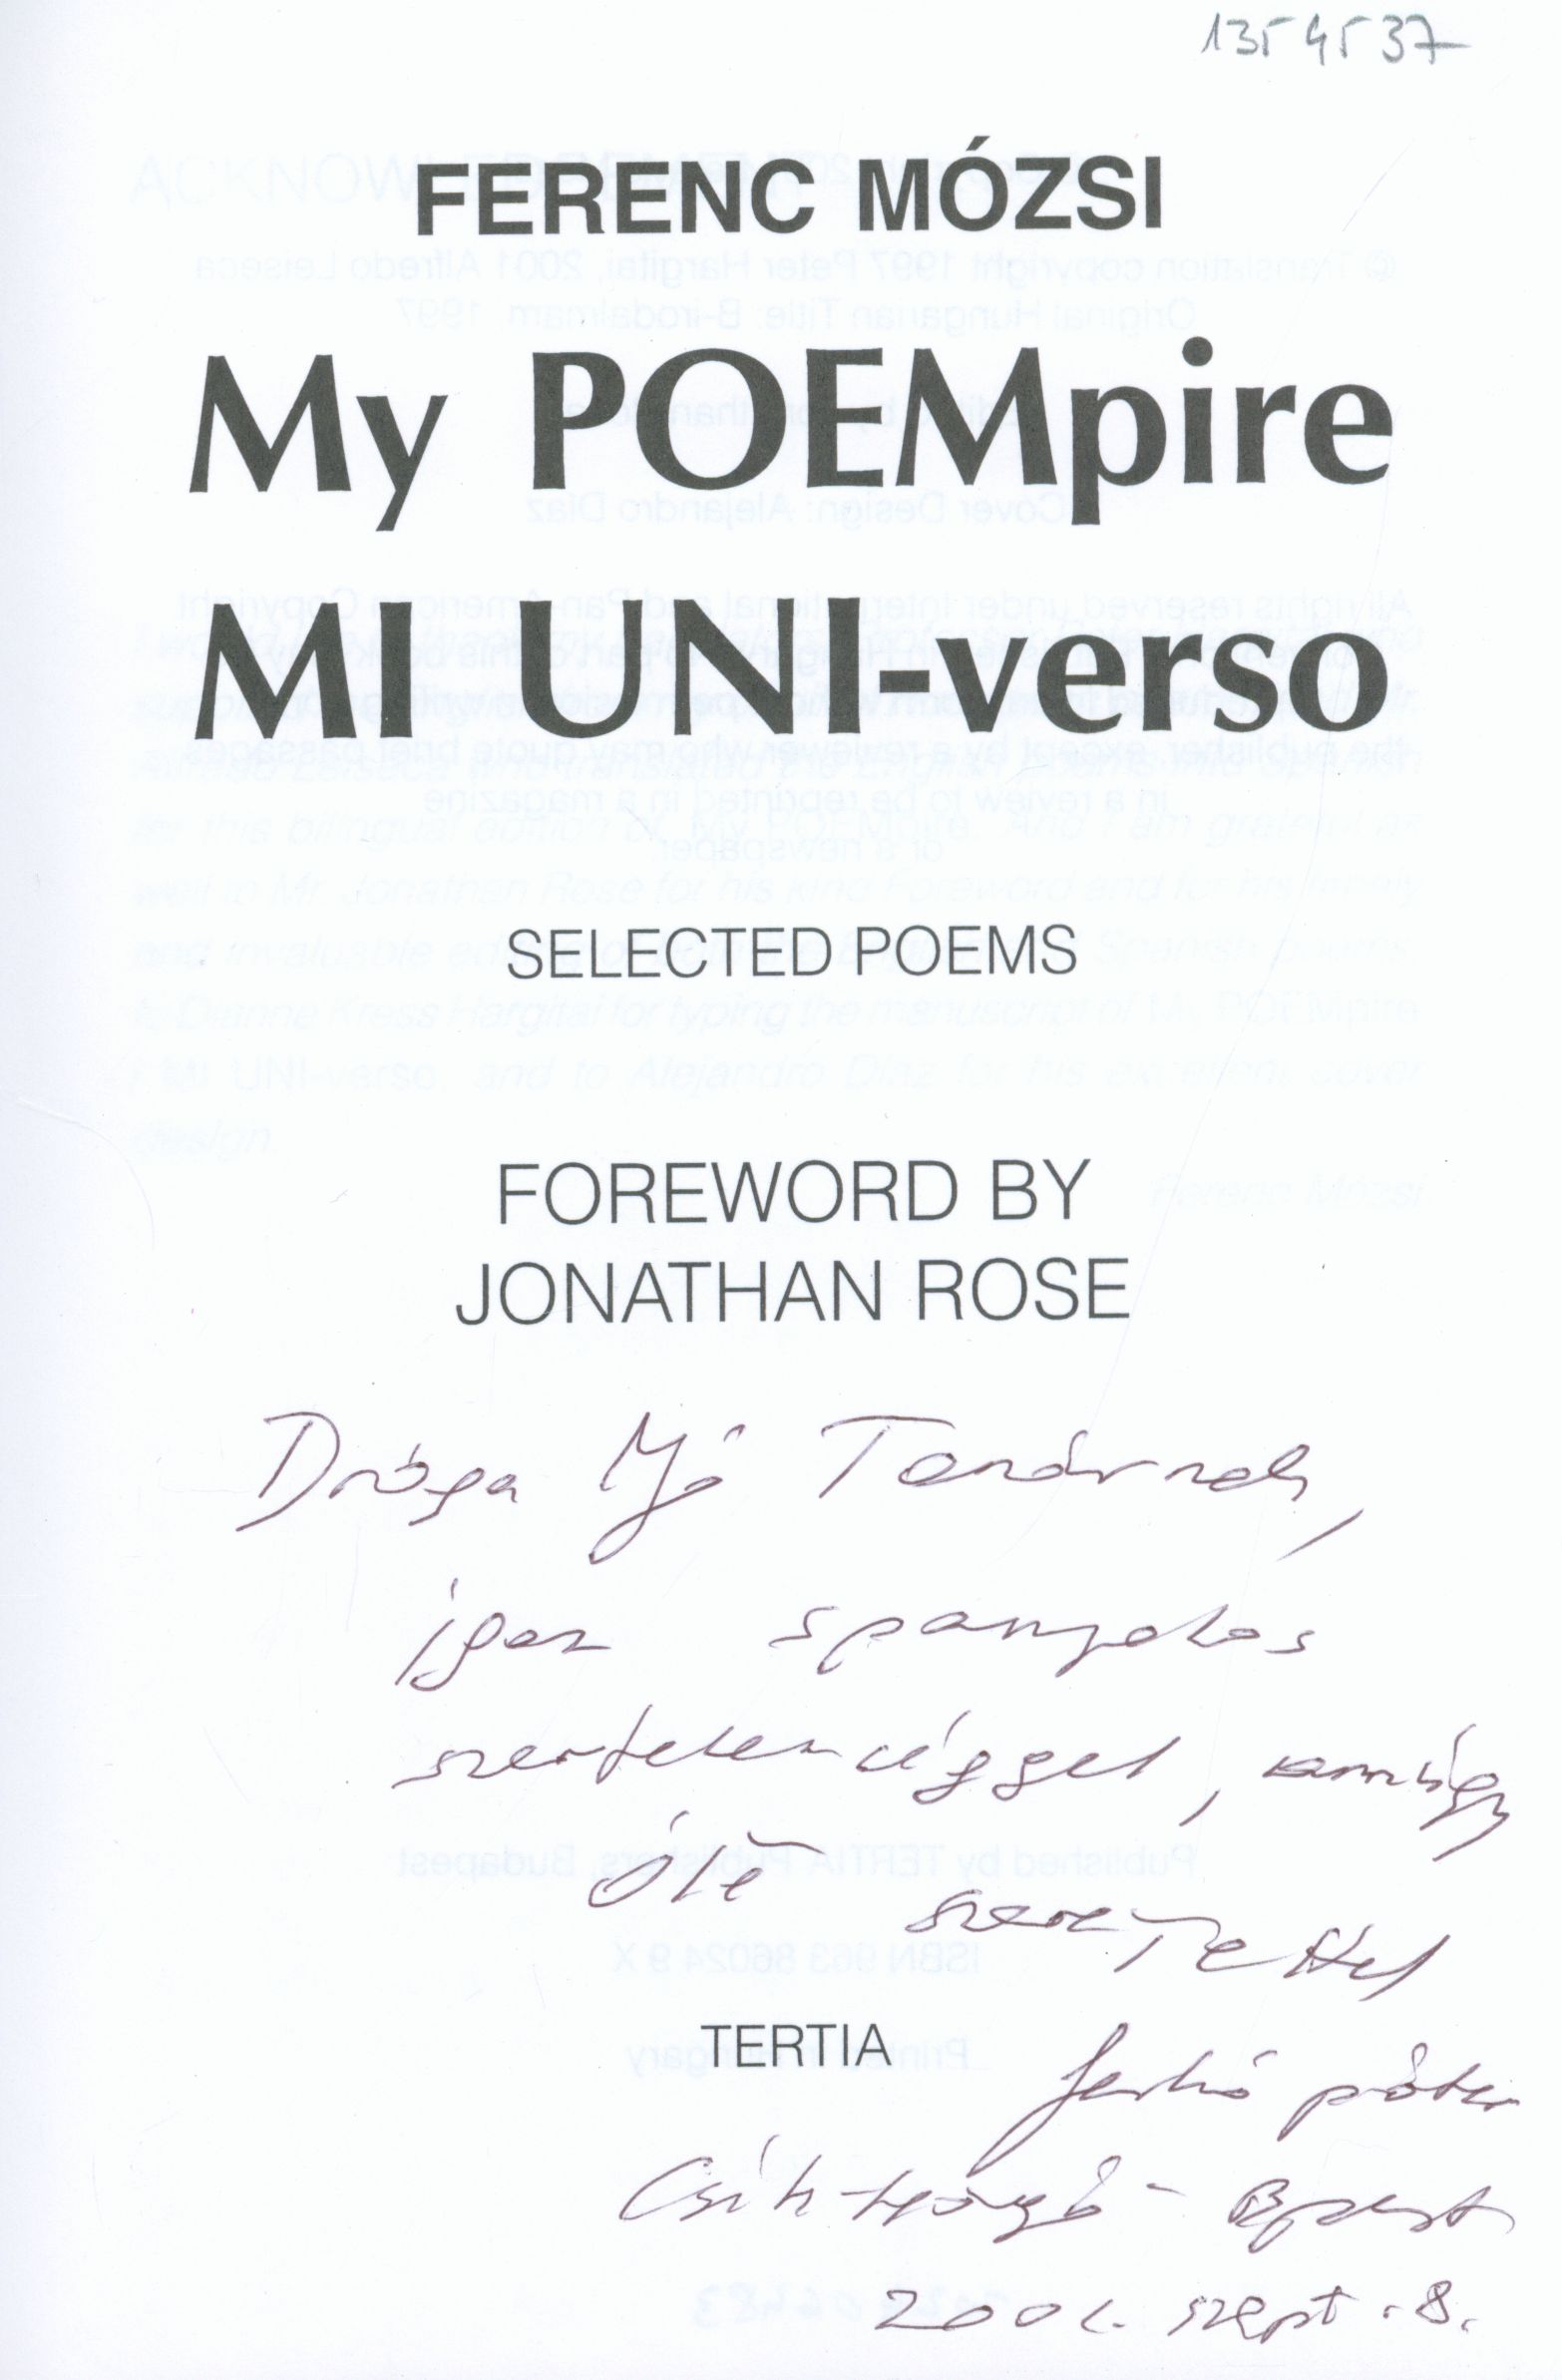 1354537
FERENC MÓZSI
My POEMpire
MI UNI-verso
SELECTED POEMS
FOREWORD BY
JONATHAN ROSE
Drága Jó Tanárnak,
igaz spanyolos
szertelenséggel, amúgy
ölő szeretettel
TERTIA
Ferkó páter
Bpest
szept. 8.